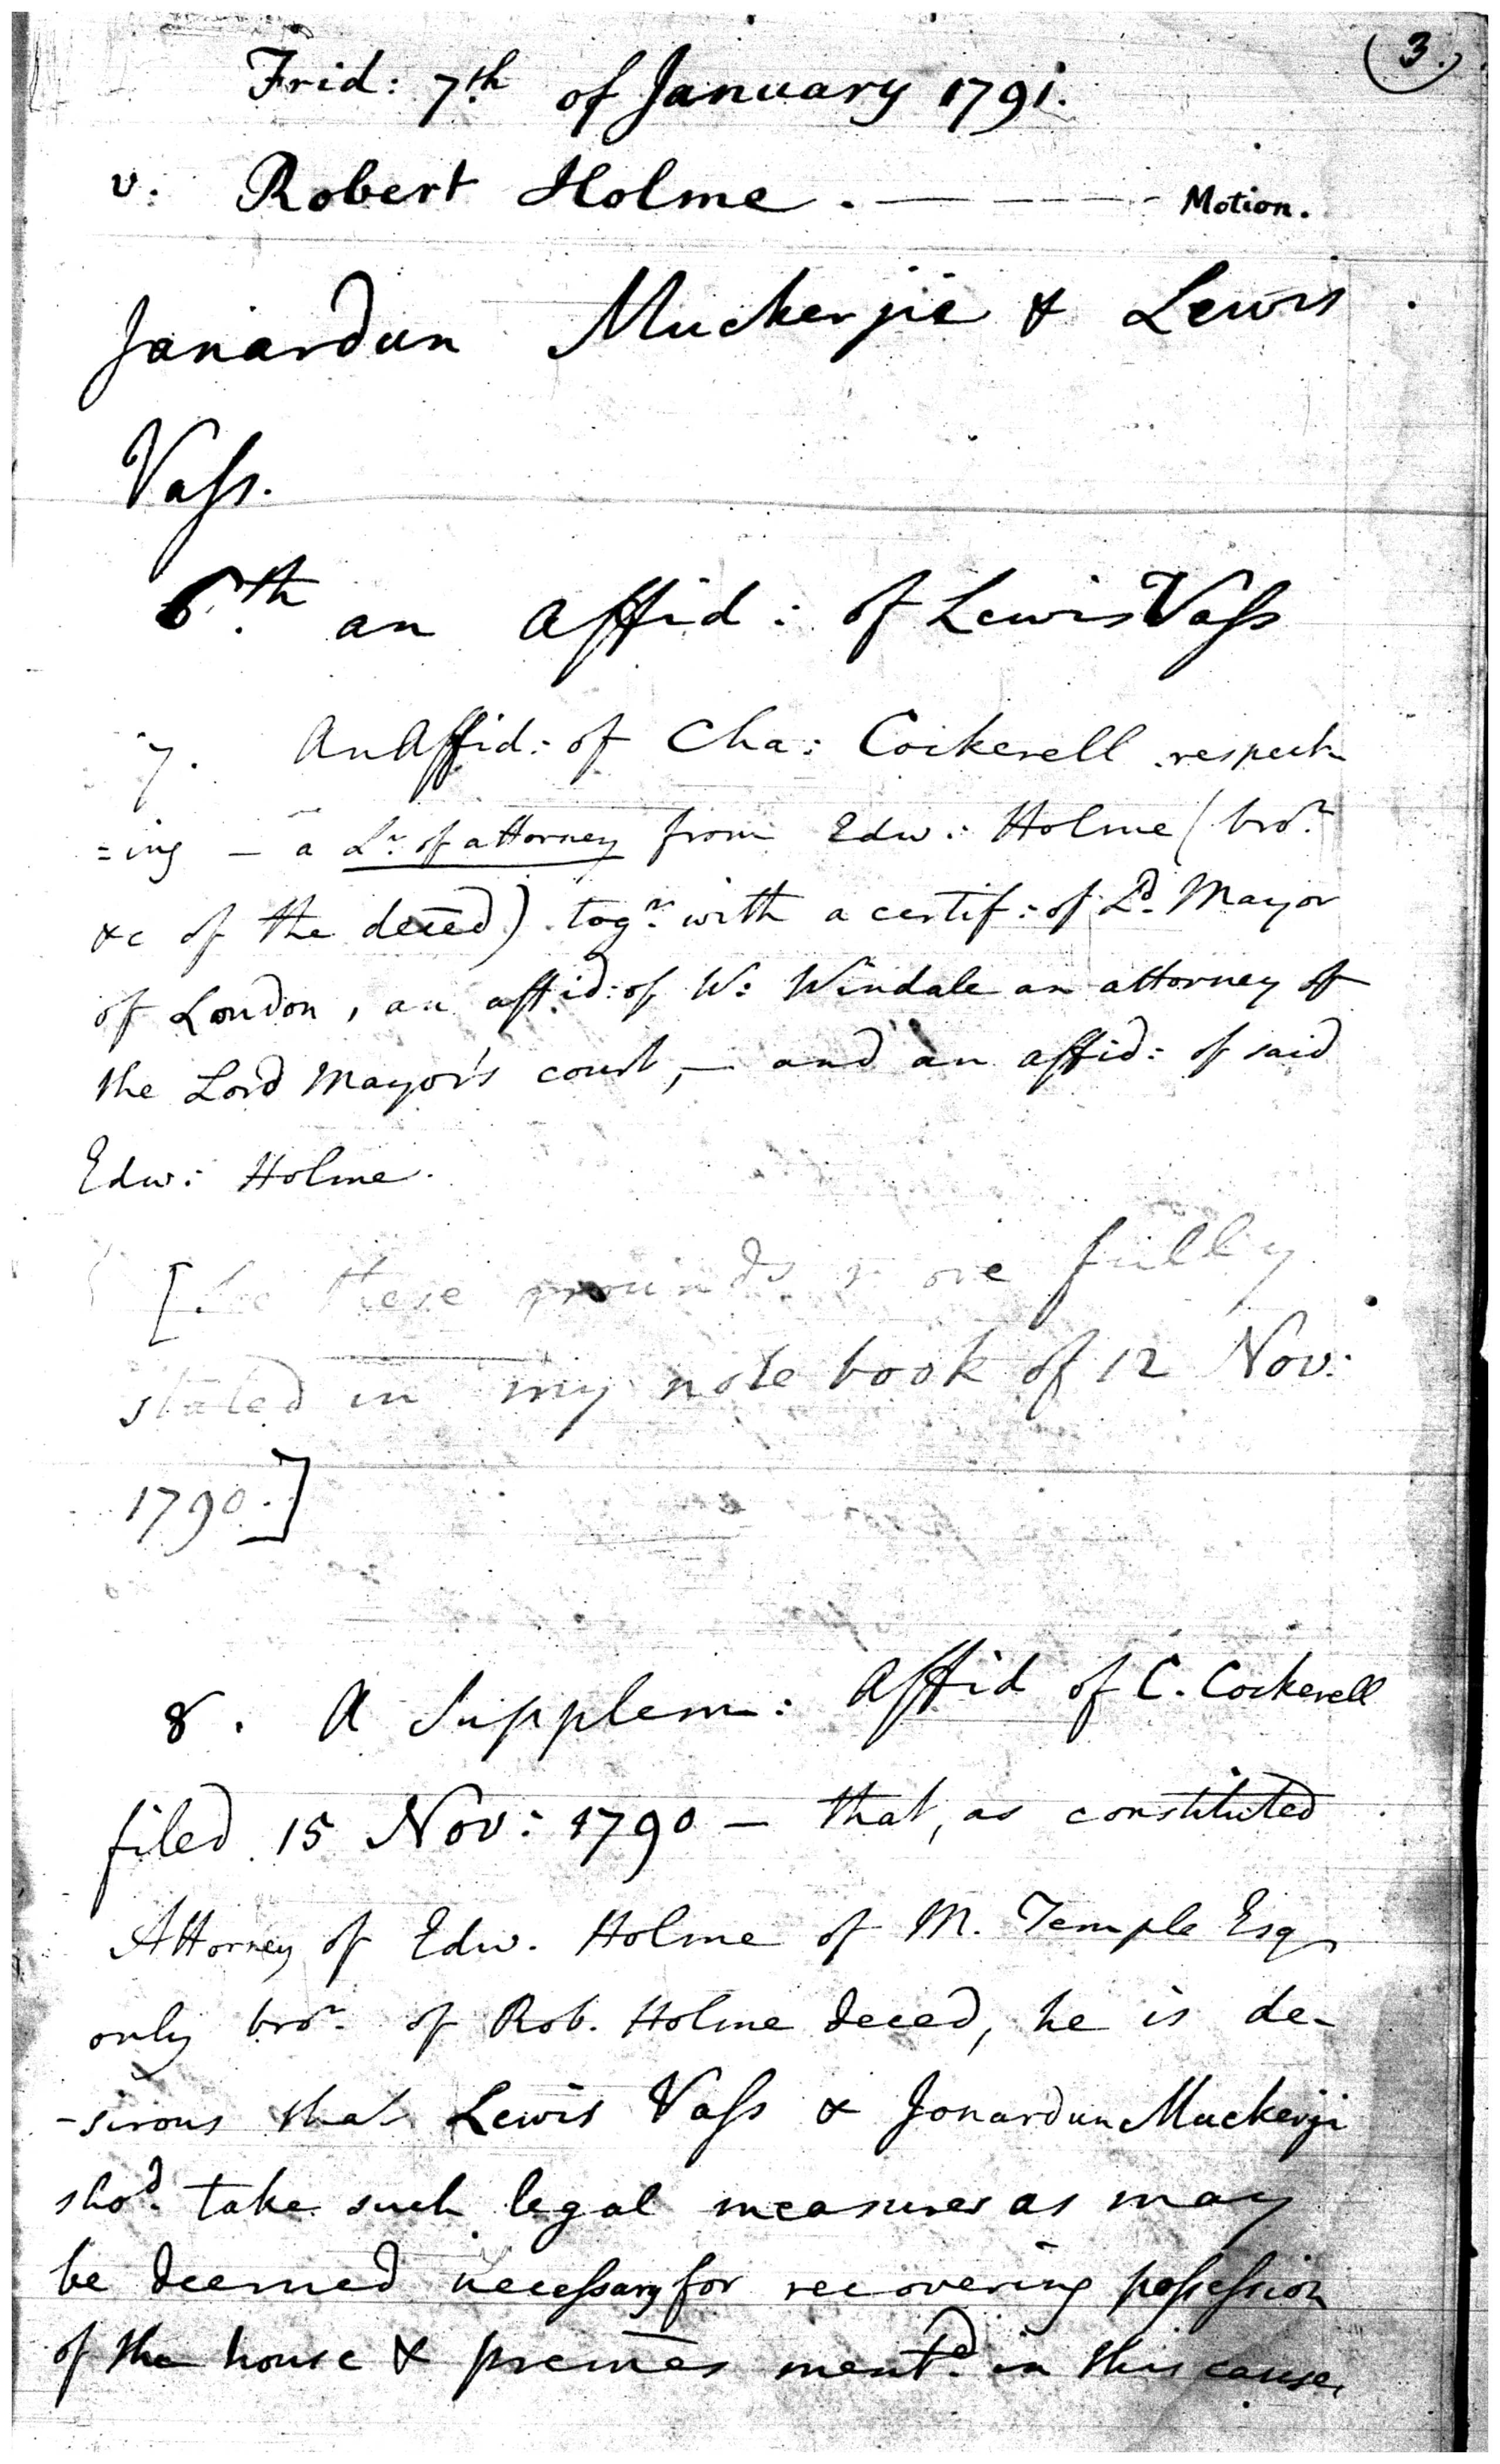 (3.)
Frid: 7th of January 1791.
v. Robert Holme. — — — - Motion.
Janardun Muckerjie & Lewis
Vaſs.
6.th an Affid: of Lewis Vaſs
7. An Affid: of Cha: Cockerell respect
=ing – a Lr. of attorney from Edw: Holme (bror.
&c of the deced) togr. with a certif: of Ld. Mayor
of London, an affid: of W: Windale an attorney of
the Lord Mayor's court, — and an affid: of said
Edw: Holme.
[See these grounds more fully
stated in my note book of 12 Nov:
1790.]
8. A Supplem: Affid of C. Cockerell
filed 15 Nov: 1790 – that, as constituted
Attorney of Edw. Holme of M. Temple Esq
only bror. of Rob. Holme deced, he is de-
-sirous that Lewis Vaſs & Jonardun Muckerji
shod. take such legal measures as may
be deemed neceſsary for recovering poſseſsion
of the house & premēs mentd. in this cause,